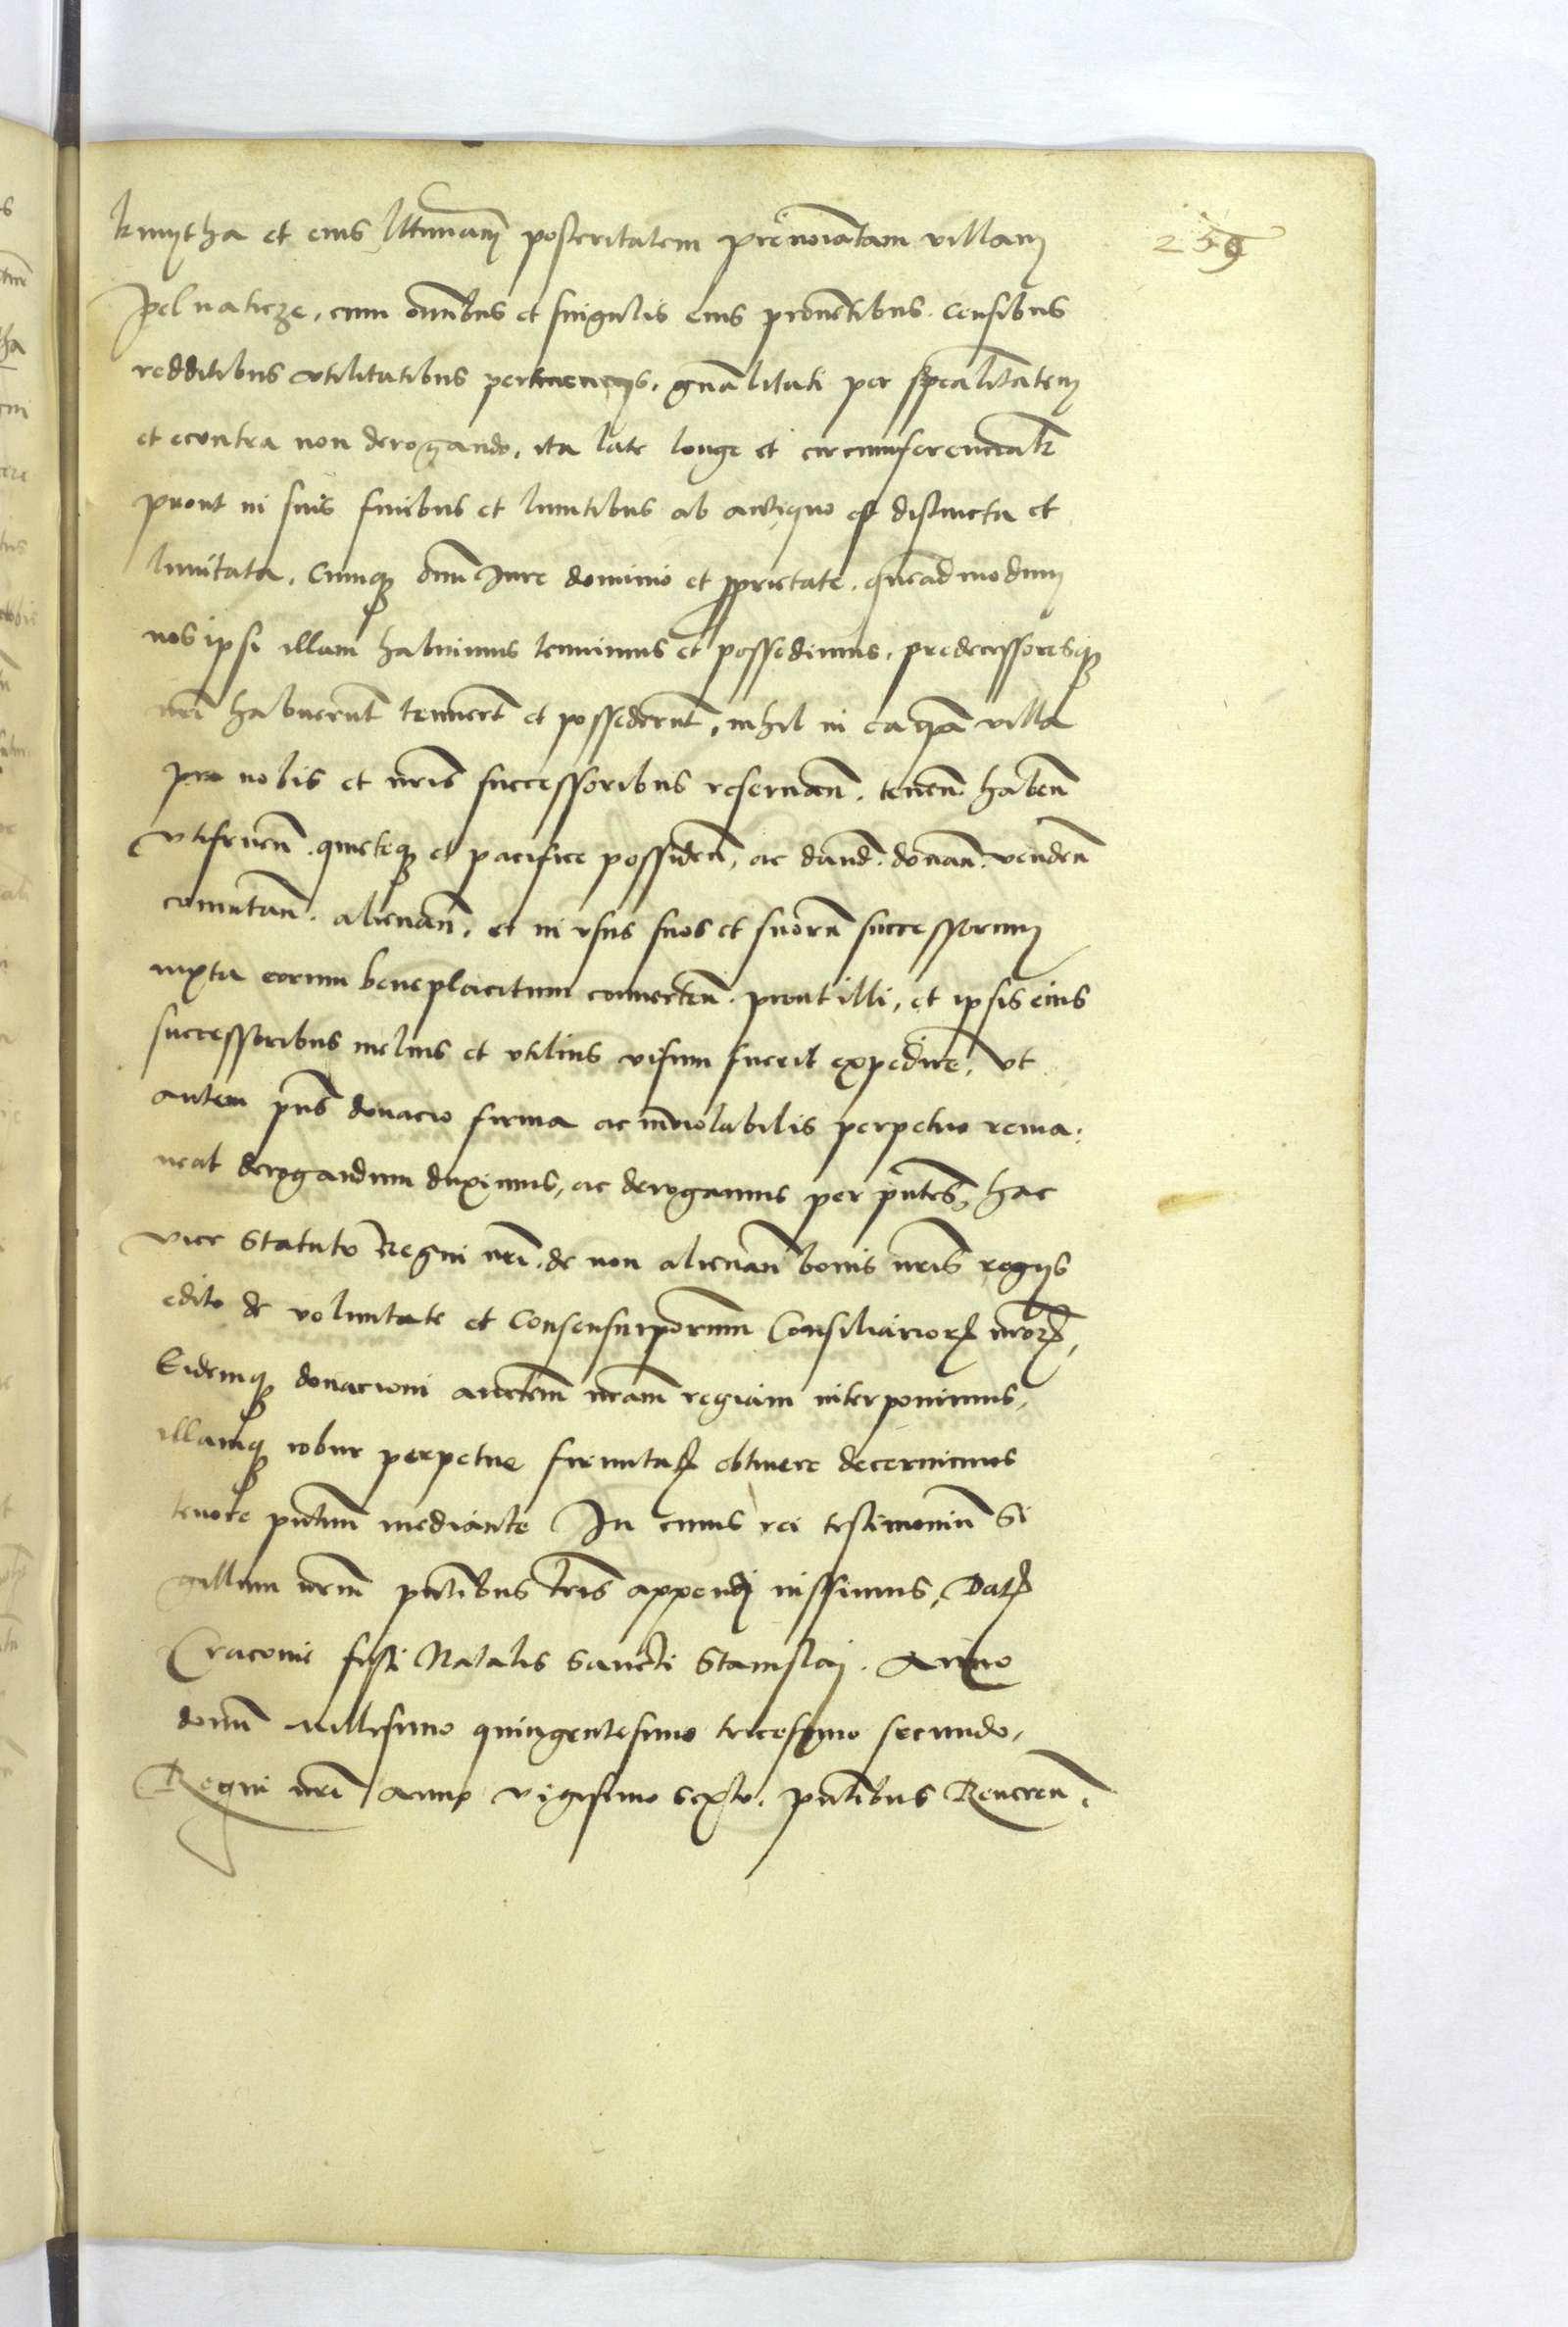 kmytha et eius lttimam posteritatem prenoiatam villam
259
Pelnaticze, cum omibus et singulis eius prouetibus. censibus
redditibus vtilitatibus pertinencijs. gnalitati per spealitatem
et econtra non derogando, ita late longe et circumferencialr
prout in suis finibus et limitibus ab antiquo est distincta et
limitata. Cumq omi Jure dominio et pprietate. queadmodum
nos ipsi illam habuimus tenuimus et possedimus, predecessoresq
nri habuerut tenuert et possederut, nihil in ea ipa villa
pro nobis et nris successoribus reseruan. tenen. haben
vtifruen. quieteq et pacifice possiden, ac dand. donan. venden
comutan. alienan, et in vsus suos et suoru successorum
iuxta eorum beneplacitum conuerten. prout illi, et ipsis eius
successoribus melius et vtilius visum fuerit expedire, Vt
autem pns donacio firma ac inuiolabilis perpetuo rema:
neat derogandum duximus, ac derogamus per pntes, hac
vice Statuto Regni nri. de non alienan bonis nris regijs
edito de voluntate et Consensu ipsorum Consiliarior nror,
Eidemq donacioni auctem nram regiam interponimus,
illamq robur perpetue firmitat obtinere decernimus
tenore pntium mediante In cuius rei testimoniu Si
gillum nrum pntibus lris appendj iussimus, Dat
Cracouie festi Natalis Sancti Stanislaj. Anno
domi millesimo quingentesimo tricesimo secundo,
Regni nri Anno vigesimo sexto. pntibus Reueren.